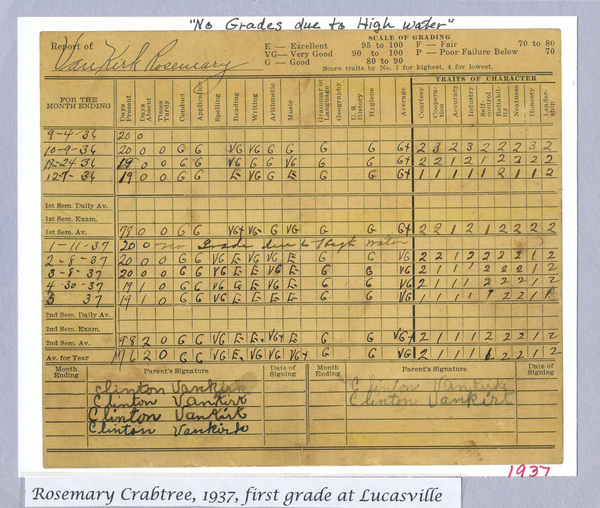 "No Grades due to High Water"
Report of VanKirk Rosemary
SCALE OF GRADING
E — Excellent 95 to 100 F — Fair 70 to 80
VG— Very Good 90 to 95 P — Poor Failure Below 70
G — Good 80 to 90
Score traits by No. 1 for highest, 4 for lowest.
TRAITS OF CHARACTER
FOR THE MONTH ENDING Days Present Days Absent Times Tardy Conduct Application Spelling Reading Writing Arithmetic Music Grammar or Language Geography U. S. History Hygiene Average Courtesy Cooperation Accuracy Industry Self-control Reliability Neatness Honesty Leadership
9-4-36 20 0
10-9-36 20 0 0 G G VG VG G G G G G+ 2 3 2 3 2 2 2 3 2
19 0 0 G G VG G G VG G G G+ 2 2 1 2 1 2 2 2 2
19 0 0 G G E VG G E G G G+
1st Sem. Daily Av.
1st Sem. Exam.
1st Sem. Av. 78 0 0 G G VG+ VG- G VG G G G+ 2 2 1 2 1 2 2 2 2
1-11-37 20 0 no Grade due to High water
2-8-37 20 0 0 G G VG E VG VG E G G VG 2 2 1 2 2 2 2 1 2
3-8-37 20 0 0 G G VG E E VG E G G VG 2 1 1 2 2 2 1 2
4-30-37 19 1 0 G G VG E VG E G G VG 2 1 1 1 2 2 2 1 2
5 37 19 1 0 G G VG E E E E G G VG
2nd Sem. Daily Av.
2nd Sem. Exam.
2nd Sem. Av. 98 2 0 G G VG E E VG+ E G G VG+ 2 1 1 1 2 2 2 1 2
Av. for Year 176 2 0 G G VG E VG VG VG+ G G VG 2 1
Month Ending Parent's Signature Date of Signing Month Ending Parent's Signature Date of Signing
Clinton Vankirk Clinton Vankirk
Clinton Vankirk Clinton Vankirk
Clinton Vankirk
Clinton Vankirk
1937
Rosemary Crabtree, 1937, first grade at Lucasville